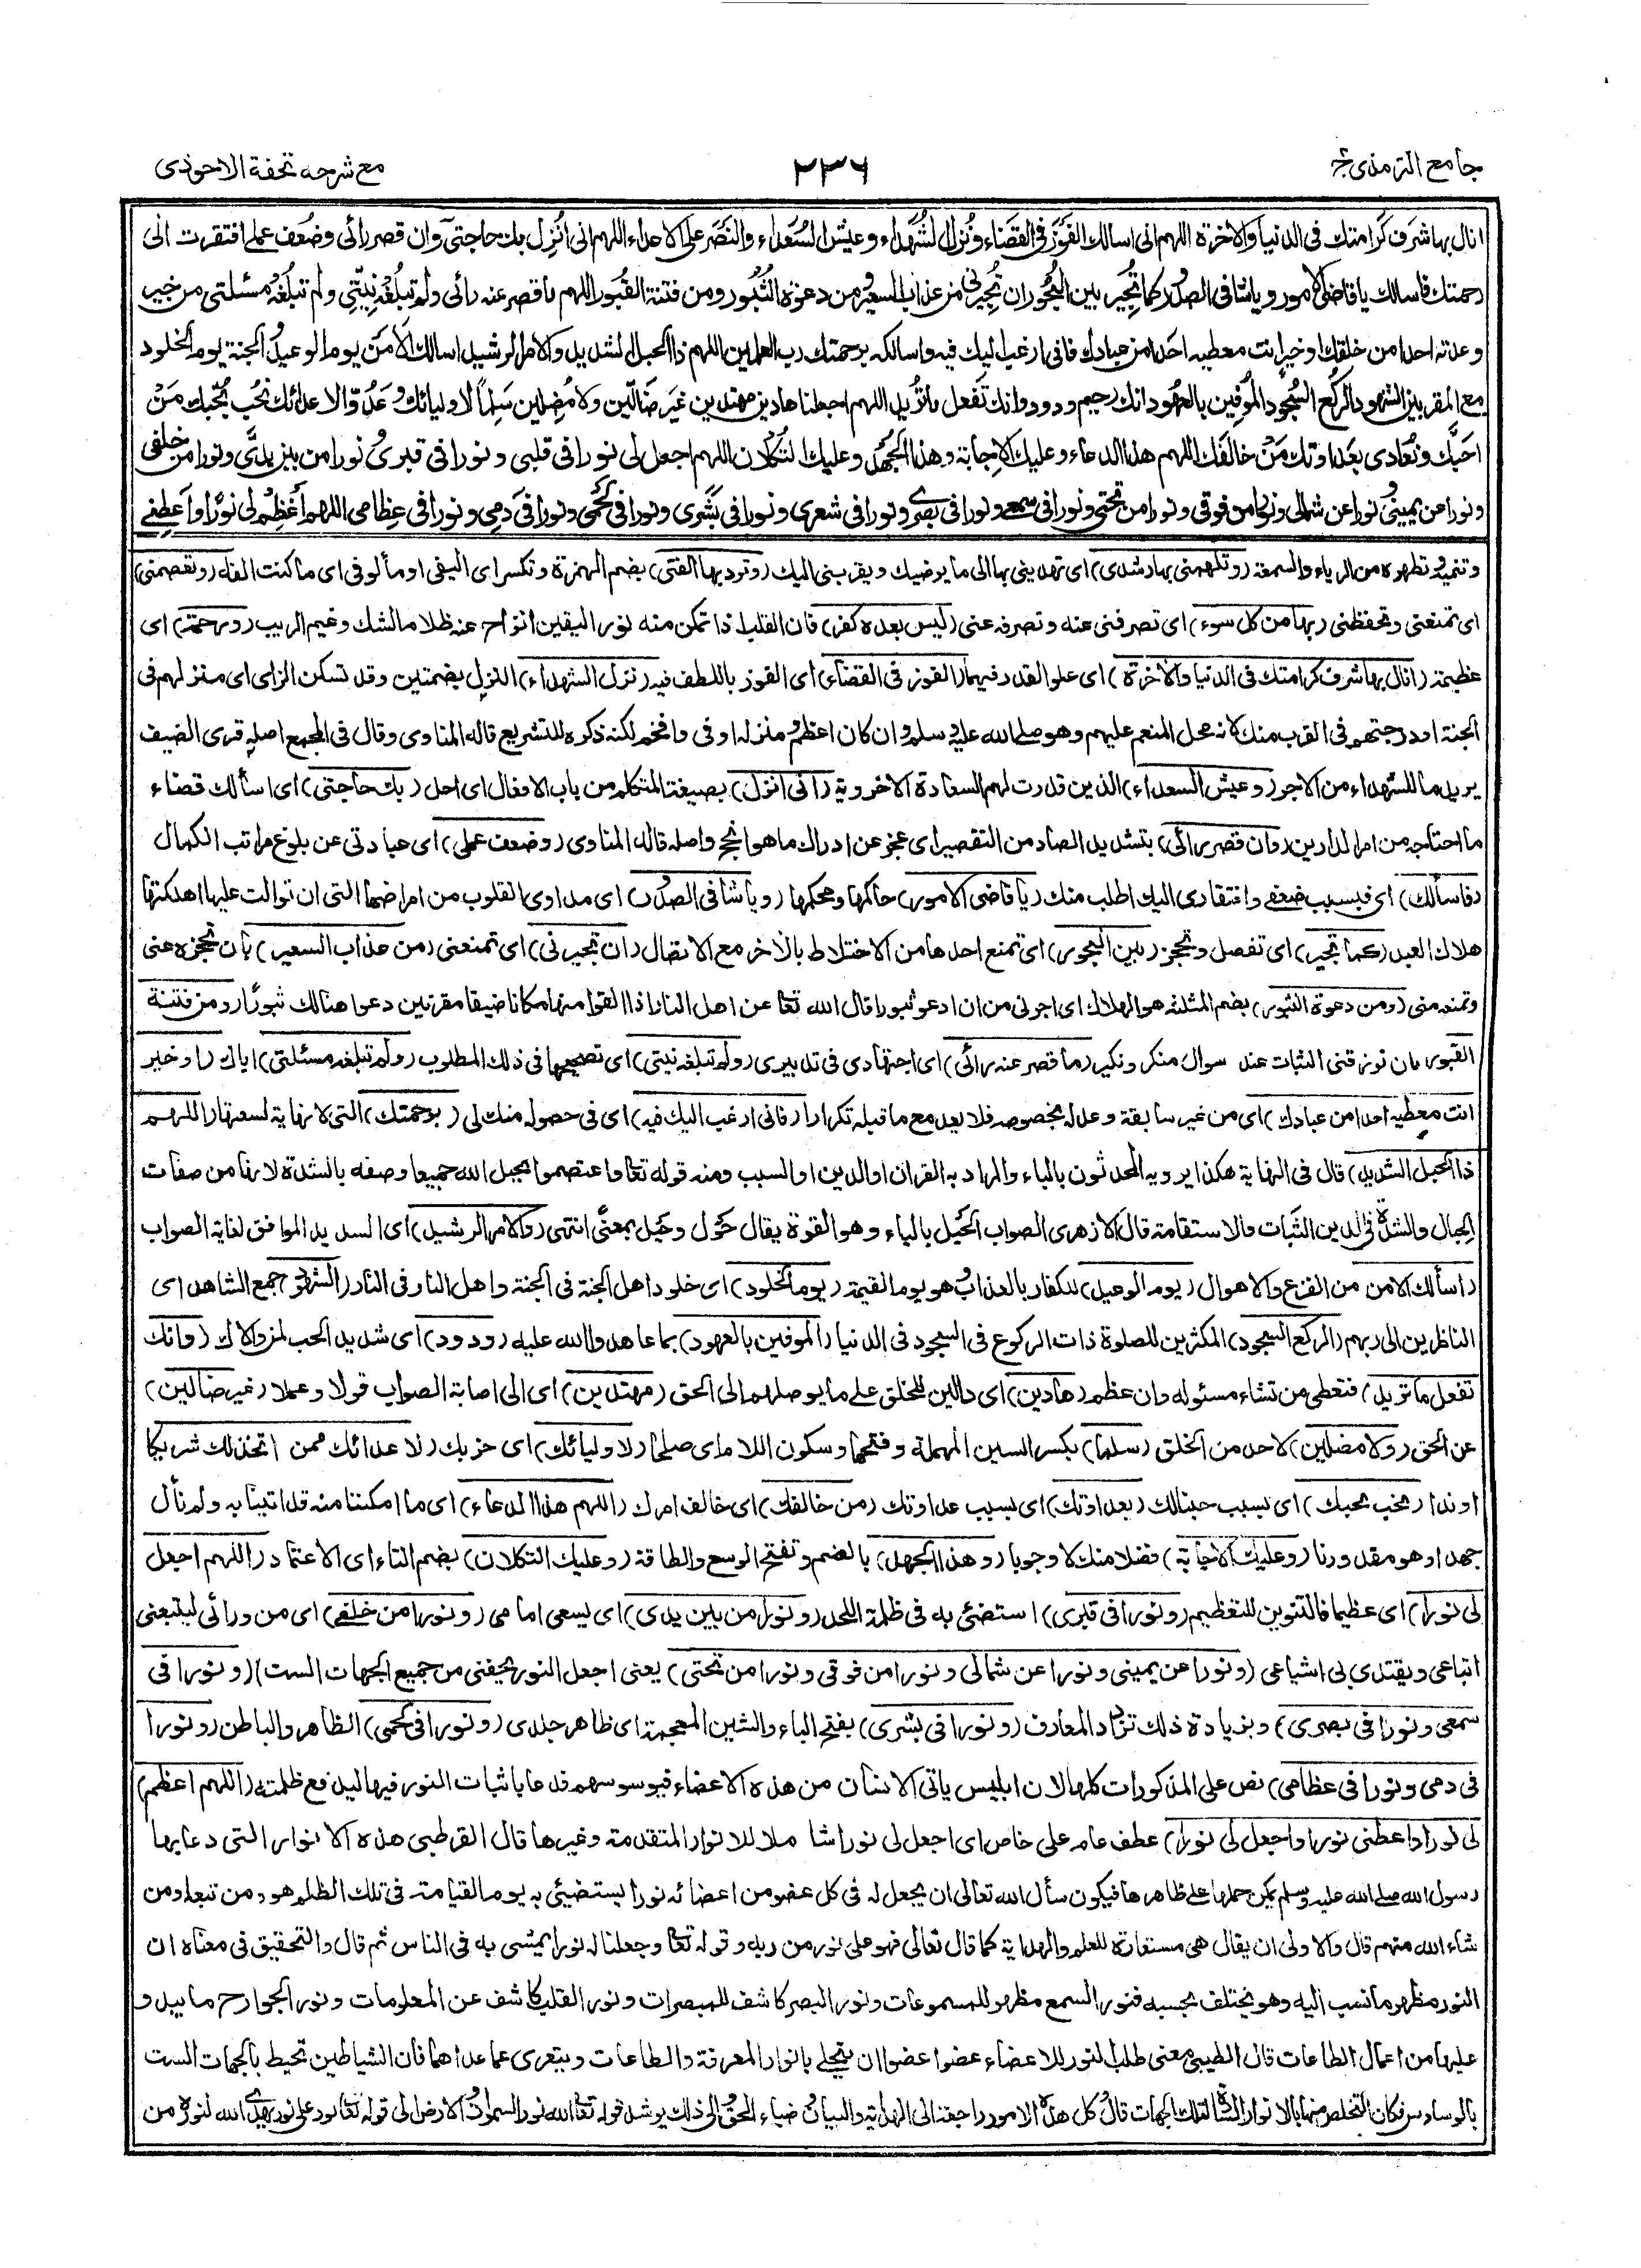 جامع الترمذی ج۴
۲۳۶
مع شرحه تحفة الاحوذی
انال بها شرف كرامتك فی الدنيا والاخرة اللهم انی اسالك الفَوْزَ فی القضاء ونُزُل الشُّهَداء وعيش السُّعَداء والنَّصر علی الاعداء اللهم انی اُنْزِل بك حاجتی وان قصر رائی وضَعُف عملی افتقرت الی
رحمتك فاسالك يا قاضی الامور ويا شافی الصدور كما تُجِير بين البُحُور ان تُجِيرنی من عذاب السعير ومن دعوة الثُّبُور ومن فتنة القُبور اللهم ما قصر عنه رائی ولم تبلُغْه نِيَّتِی ولم تبلُغْه مسئلتی من خير
وعدته احدا من خلقك او خير انت معطيه احدا من عبادك فانی ارغب اليك فيه واسالكه برحمتك رب العلمين اللهم ذا الحبل الشديد والامر الرشيد اسالك الامن يوم الوعيد والجنة يوم الخلود
مع المقربين الشهود الركع السُّجُود المُوْفِين بالعُهود انك رحيم ودود وانك تفعل ما تُرِيد اللهم اجعلنا هادين مهتدين غير ضَالّين ولا مُضِلين سِلماً لاوليائك وعَدُوّا لاعدائك نُحِب بحُبّك مَنْ
احَبَّك ونُعَادی بعَدَاوتك مَنْ خالفك اللهم هذا الدعاء وعليك الاجابة وهذا الجُهْد وعليك التُّكلان اللهم اجعل لی نورا فی قلبی ونورا فی قبری ونورا من بين يدیَّ ونورا من خلفی
ونورا عن يمينی ونورا عن شمالی ونورا من فوقی ونورا من تحتی ونورا فی سمعی ونورا فی بصری ونورا فی شعری ونورا فی بَشَری ونورا فی لَحْمی ونورا فی دَمِی ونورا فی عِظامی اللهم أَعْظِمْ لی نُورًا واَعْطِنِی
وتنميه وتطهره من الرياء والسمعة (وتلهمنی بها رشدی) ای تهدينی بها الی ما يرضيك ويقربنی اليك (وترد بها الفتی) بضم الهمزة وتكسر ای اليفی او مألوفی ای ما كنت الفه (وتعصمنی)
ای تمنعنی وتحفظنی (بها من كل سوء) ای تصرفنی عنه وتصرفه عنی (ليس بعده كفر) فان القلب اذا تمكن منه نور اليقين انزاح عنه ظلام الشك وغيم الريب (ورحمة) ای
عظيمة (انال بها شرف كرامتك فی الدنيا والاخرة) ای علو القدر فيهما (الفوز فی القضاء) ای الفوز باللطف فيه (نزل الشهداء) النزل بضمتين وقد تسكن الزای ای منزلهم فی
الجنة او درجتهم فی القرب منك لانه محل المنعم عليهم وهو صلی الله عليه وسلم وان كان اعظم ومنزله اوفی وافخم لكنه ذكره للتشريع قاله المناوی وقال فی المجمع اصله قری الضيف
يريد ما للشهداء من الاجر (وعيش السعداء) الذين قدرت لهم السعادة الاخروية (انی انزل) بصيغة المتكلم من باب الافعال ای احل (بك حاجتی) ای اسألك قضاء
ما احتاجه من امر الدارين (وان قصر رائی) بتشديد الصاد من التقصير ای عجز عن ادراك ما هو انجح واصله قاله المناوی (وضعف عملی) ای عبادتی عن بلوغ مراتب الكمال
(فاسألك) ای فبسبب ضعفی وافتقاری اليك اطلب منك (يا قاضی الامور) حاكمها ومحكمها (ويا شافی الصدور) ای مداوی القلوب من امراضها التی ان توالت عليها اهلكتها
هلاك العبد (كما تجير) ای تفصل وتحجز (بين البحور) ای تمنع احدها من الاختلاط بالاخر مع الاتصال (ان تجيرنی) ای تمنعنی (من عذاب السعير) بان تحجزه عنی
وتمنعه منی (ومن دعوة الثبور) بضم المثلثة هو الهلاك ای اجرنی من ان ادعو ثبورا قال الله تعا عن اهل النار اذا القوا منها مكانا ضيقا مقرنين دعوا هنالك ثبورًا (ومن فتنة
القبور) بان ترزقنی الثبات عند سوال منكر ونكير (ما قصر عنه رائی) ای اجتهادی فی تدبيری (ولم تبلغه نيتی) ای تصحيحها فی ذلك المطلوب (ولم تبلغه مسئلتی) اياك (او خير
انت معطيه احدا من عبادك) ای من غير سابقة وعد له بخصوصه فلا يعد مع ما قبله تكرارا (فانی ارغب اليك فيه) ای فی حصوله منك لی (برحمتك) التی لا نهاية لسعتها (اللهم
ذا الحبل الشديد) قال فی النهاية هكذا يرويه المحدثون بالباء والمراد به القران او الدين او السبب ومنه قوله تعا واعتصموا بحبل الله جميعا وصفه بالشدة لانها من صفات
الحبال والشدة فی الدين الثبات والاستقامة قال الازهری الصواب الحَيْل بالياء وهو القوة يقال حَوْل وحَيْل بمعنًی انتهی (والامر الرشيد) ای السديد الموافق لغاية الصواب
(اسألك الامن من الفزع والاهوال (يوم الوعيد) للكفار بالعذاب وهو يوم القيمة (يوم الخلود) ای خلود اهل الجنة فی الجنة واهل النار فی النار (الشهود) جمع الشاهد ای
الناظرين الی ربهم (الركع السجود) المكثرين للصلوة ذات الركوع فی السجود فی الدنيا (الموفين بالعهود) بما عاهدوا الله عليه (ودود) ای شديد الحب لمن والاك (وانك
تفعل ما تريد) فتعطی من تشاء مسئوله وان عظم (هادين) ای دالين للخلق علی ما يوصلهم الی الحق (مهتدين) ای الی اصابة الصواب قولا وعملا (غير ضالين)
عن الحق (ولا مضلين) لاحد من الخلق (سلما) بكسر السين المهملة وفتحها وسكون اللام ای صلحا (لاوليائك) ای حزبك (لاعدائك ممن اتخذ لك شريكا
او ندا (نحب بحبك) ای بسبب حبنا لك (بعداوتك) ای بسبب عداوتك (من خالفك) ای خالف امرك (اللهم هذا الدعاء) ای ما امكننا منه قد اتينا به ولم نأل
جهدا وهو مقدورنا (وعليك الاجابة) فضلا منك لا وجوبا (وهذا الجهد) بالضم وتفتح الوسع والطاقة (وعليك التكلان) بضم التاء ای الاعتماد (اللهم اجعل
لی نورا) ای عظيما فالتنوين للتعظيم (ونورا فی قبری) استضئ به فی ظلمة اللحد (ونورا من بين يدی) ای يسعی امامی (ونورا من خلفی) ای من ورائی ليتبعنی
اتباعی ويقتدی بی اشياعی (ونورا عن يمينی ونورا عن شمالی ونورا من فوقی ونورا من تحتی) يعنی اجعل النور يحفنی من جميع الجهات الست (ونورا فی
سمعی ونورا فی بصری) وبزيادة ذلك تزداد المعارف (ونورا فی بشری) بفتح الباء والشين المعجمة ای ظاهر جلدی (ونورا فی لحمی) الظاهر والباطن (ونورا
فی دمی ونورا فی عظامی) نص علی المذكورات كلها لان ابليس ياتی الانسان من هذه الاعضاء فيوسوسهم فدعا باثبات النور فيها ليدفع ظلمته (اللهم اعظم)
لی نورا واعطنی نورا واجعل لی نورا) عطف عام علی خاص ای اجعل لی نورا شاملا للانوار المتقدمة وغيرها قال القرطبی هذه الانوار التی دعا بها
رسول الله صلی الله عليه وسلم يمكن حملها علی ظاهرها فيكون سأل الله تعالی ان يجعل له فی كل عضو من اعضائه نورا يستضیئ به يوم القيامة فی تلك الظلم هو ومن تبعه ومن
شاء الله منهم قال والاولی ان يقال هی مستعارة للعلم والهداية كما قال تعالی فهو علی نور من ربه وقوله تعا وجعلنا له نورا يمشی به فی الناس ثم قال والتحقيق فی معناه ان
النور مظهر ما نسب اليه وهو يختلف بحسبه فنور السمع مظهر للمسموعات ونور البصر كاشف للمبصرات ونور القلب كاشف عن المعلومات ونور الجوارح ما يبدو
عليها من اعمال الطاعات قال الطيبی معنی طلب النور للاعضاء عضوا عضوا ان يتحلی بانوار المعرفة والطاعات ويتعری عما عداهما فان الشياطين تحيط بالجهات الست
بالوساوس فكان التخلص منها بالانوار السادة لتلك الجهات قال وكل هذه الامور راجعة الی الهداية والبيان وضياء الحق والی ذلك يرشد قوله تعا الله نور السموات والارض الی قوله تعا نور علی نور يهدی الله لنوره من